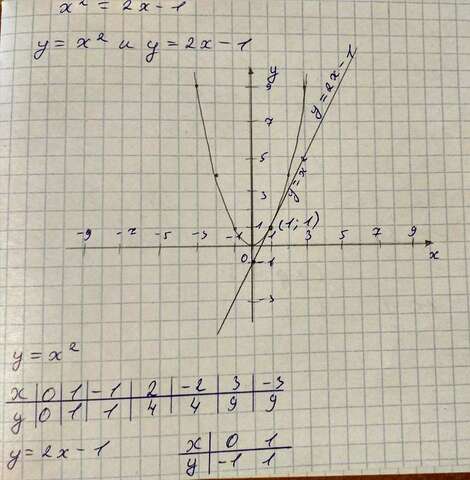 x² = 2x - 1
y = x² и y = 2x - 1
y
9
7
5
3
1
(1; 1)
y = 2x - 1
y = x²
-9 -7 -5 -3 -1 1 3 5 7 9
x
0
-1
-3
y = x²
x 0 1 -1 2 -2 3 -3
y 0 1 1 4 4 9 9
y = 2x - 1
x 0 1
y -1 1